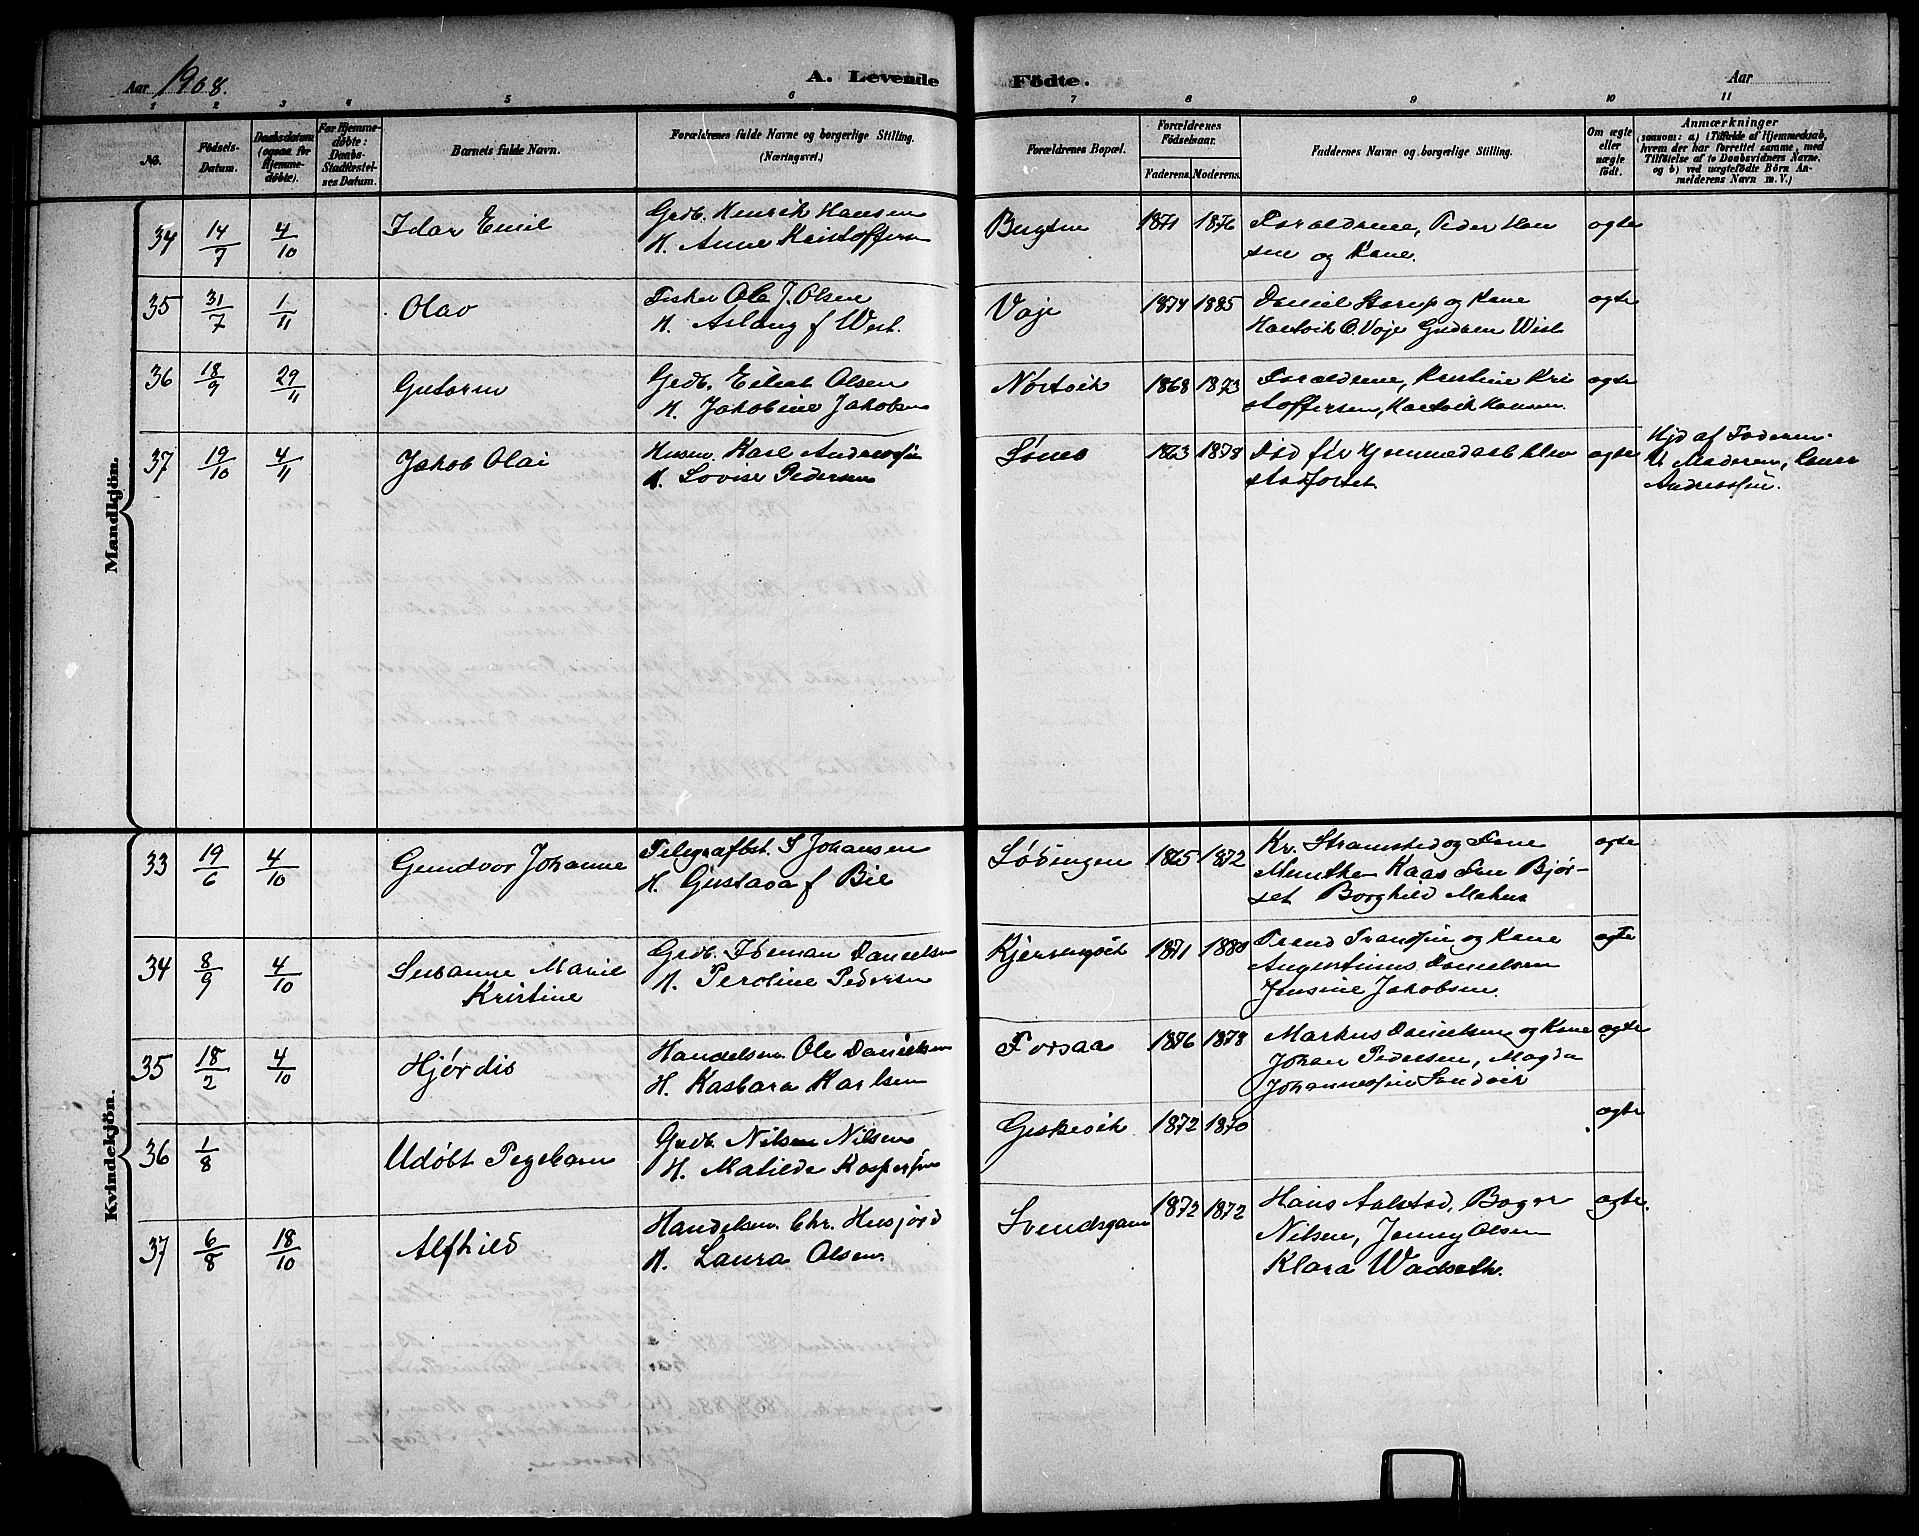 Aar 1908.
A. Levende Födte.
Aar
1 2 3 4 5 6 7 8 9 10 11
No.
Födsels-
Datum.
Daabsdatum
(ogsaa for
Hjemme-
døbte).
For Hjemme-
døbte:
Daabs-
Stadfæstel-
ses Datum.
Barnets fulde Navn.
Forældrenes fulde Navne og borgerlige Stilling.
(Næringsvei.)
Forældrenes Bopæl.
Forældrenes
Födselsaar.
Faderens.
Moderens.
Faddernes Navne og borgerlige Stilling.
Om ægte
eller
uægte
födt.
Anmærkninger
(saasom: a) i Tilfælde af Hjemmedaab,
hvem der har forrettet samme, med
Tilföielse af to Daabsvidners Navne.
og b) ved uægtefödte Börn An-
melderens Navn m. V.)
Mandkjön.
34 14/7 4/10 Idar Emil Grdb. Henrik Hansen Bugten 1871 1876 Forældrene, Peder Han ægte
H. Anne Kristoffersen sen og Kone.
35 31/7 1/11 Olav Fisker Ole J. Olsen Vaje 1874 1885 Daniel Storup og Kone ægte
H. Aslaug f West. Hartvik O. Vaje Gudrun West
36 18/9 29/11 Gutorm Grdb. Eiliat Olsen Nørtvik 1868 1873 Forældrene, Kristine Kri ægte
H. Jakobine Jakobsen stoffersen, Hartvik Hansen.
37 19/10 4/11 Jakob Olai Husm. Karl Andreassen 1863 1878 Død før Hjemmedaab blev ægte Hjd af Faderen.
H. Lovise Pedersen stadfæstet. V. Moderen,
Andreassen.
Kvindekjön.
33 19/6 4/10 Gundvor Johanne Telegrafbst. S Johansen Lødingen 1865 1872 Kr. Stramsted og Frue ægte
H. Gustava f Bie Munthe Kaas Frue Bjør-
set Borghild
34 8/9 4/10 Susanne Marie Grdb. Danielsen Kjersengvik 1871 1880 Trand og Kone ægte
Kristine H. Peroline Pedersen Augustinus Danielsen
Jensine Jakobsen.
35 18/2 4/10 Hjørdis Handelsm. Ole Danielsen Forsaa 1876 1878 Markus Danielsen og Kone ægte
H. Kasbara Karlsen Johan Pedersen, Magda
Johannessen Sandvik
36 1/8 Udøbt Pigebarn Grdb. Nilsen Nilsen Geskevik 1872 1870 ægte
H. Matilde Kaspersen
37 6/8 18/10 Alfhild Handelsm. Chr. Husjord Svendsgam 1872 1872 Hans Aalstad, Roger ægte.
H. Laura Olsen. Nilsen, Jenny Olsen
Klara Wadseth.